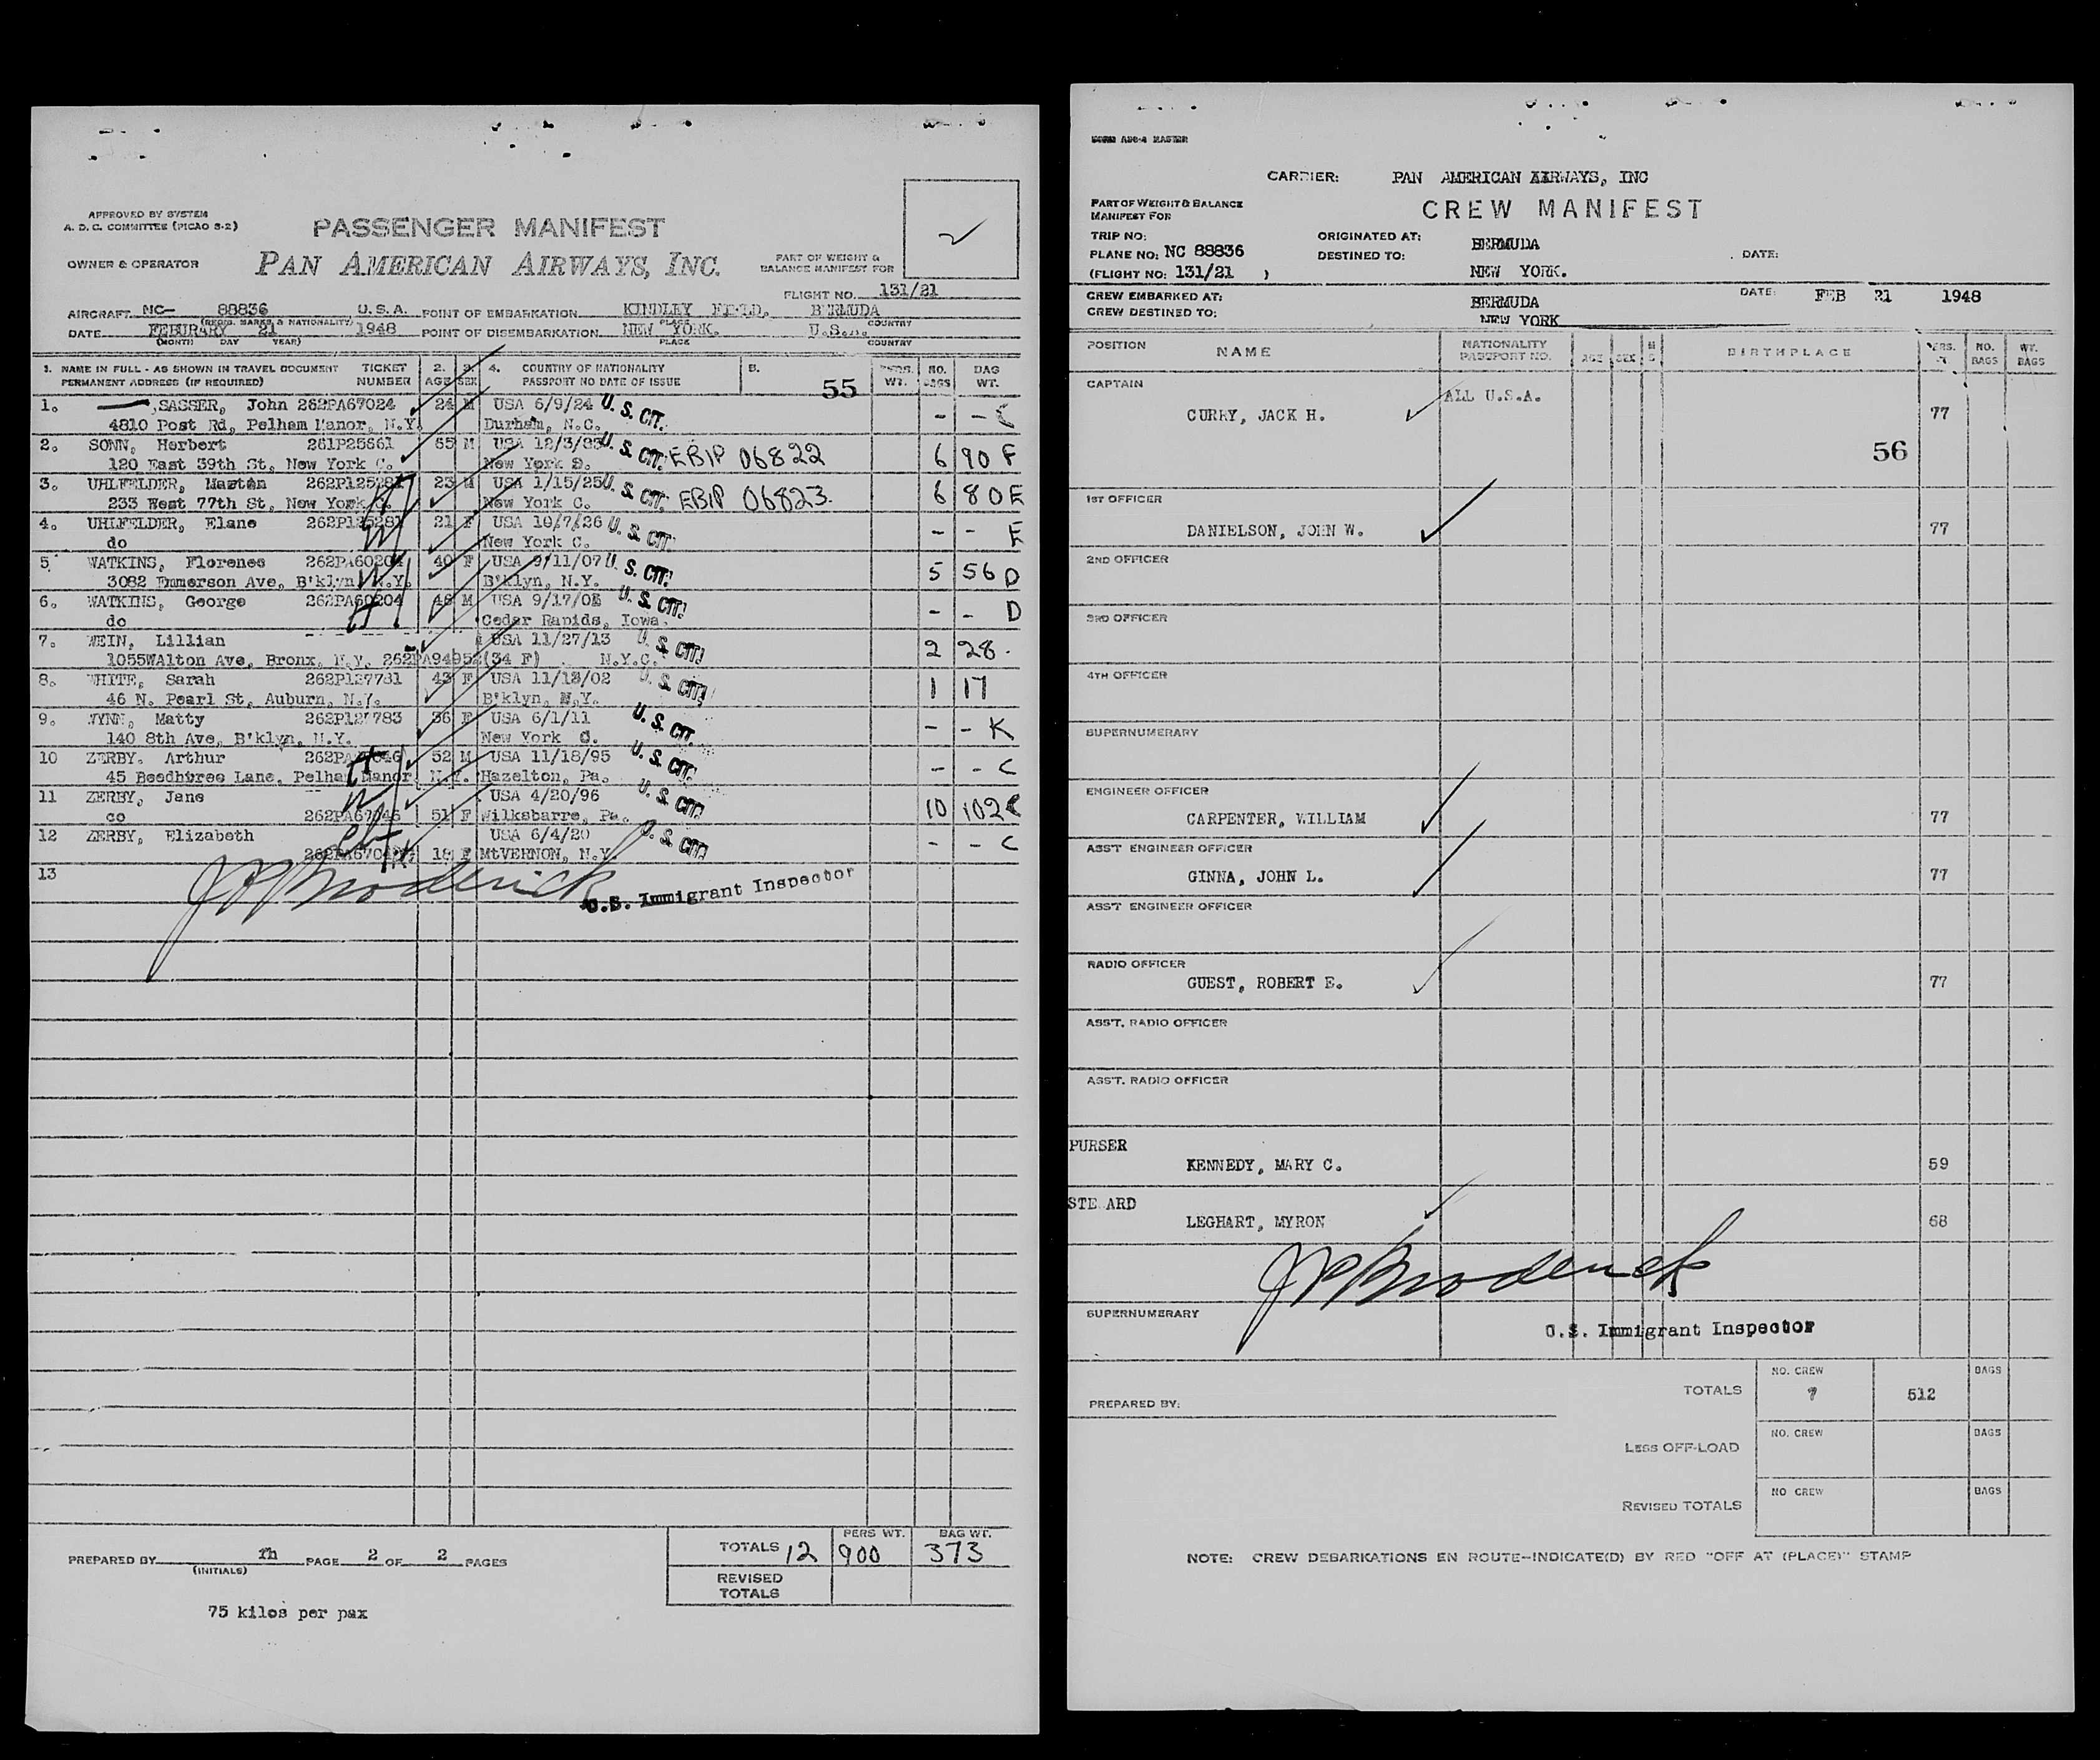 APPROVED BY SYSTEM
A. D. C. COMMITTEE (PICAO S-2)
PASSENGER MANIFEST
OWNER & OPERATOR
PAN AMERICAN AIRWAYS, INC.
PART OF WEIGHT &
BALANCE MANIFEST FOR
FLIGHT NO. 131/21
AIRCRAFT NC- 88836 U.S.A. POINT OF EMBARKATION KINDLEY BERMUDA
(REGIS. MARKS & NATIONALITY) PLACE COUNTRY
DATE FEBURARY 21 1948 POINT OF DISEMBARKATION NEW YORK. U.S.A.
(MONTH DAY YEAR) PLACE COUNTRY
1. NAME IN FULL - AS SHOWN IN TRAVEL DOCUMENT TICKET 2. 3. 4. COUNTRY OF NATIONALITY 5. PERS. NO. BAG
PERMANENT ADDRESS (IF REQUIRED) NUMBER AGE SEX PASSPORT NO DATE OF ISSUE 55 WT. BAGS WT.
1. SASSER, John 262PA67024 24 M USA 6/9/24 U. S. CIT. - -
4810 Post Rd, Pelham Manor, N.Y. Durham, N.C.
2. SONN, Herbert 261P25661 65 M USA 12/3/83 U. S. CIT. EBIP 06822 6 90 F
120 East 39th St, New York C. New York
3. UHLFELDER, 262P125281 23 M USA 1/15/25 U. S. CIT. EBIP 06823 6 80 E
233 West 77th St, New York C. New York C.
4. UHLFELDER, Elane 262P125281 21 F USA 10/7/26 U. S. CIT. - - E
do New York C.
5 WATKINS, Florence 262PA60204 40 F USA 9/11/07 U. S. CIT. 5 56 D
3082 Emmerson Ave, B'klyn N.Y. B'klyn, N.Y.
6. WATKINS, George 262PA60204 M USA U. S. CIT. - - D
do Cedar Rapids, Iowa.
7. WEIN, Lillian USA 11/27/13 U. S. CIT. 2 28.
1055WAlton Ave, Bronx, N.Y. (34 F) N.Y.C.
8. WHITE, Sarah 262P127781 43 F USA U. S. CIT. 1 17
46 N. Pearl St, Auburn, N.Y. B'klyn, N.Y.
9. WYNN, Matty 262P127783 36 F USA 6/1/11 U. S. CIT. - - K
140 8th Ave, B'klyn, N.Y. New York C.
10 ZERBY. Arthur 52 M USA 11/18/95 U. S. CIT. - - C
45 Lane, Pelham Manor N.Y. Hazelton, Pa.
11 ZERBY, Jane USA 4/20/96 U. S. CIT. 10 102 C
262PA67046 51 F Wilksbarre, Pa.
12 ZERBY, Elizabeth USA U. S. CIT. - - C
F MtVERNON, N.Y.
13
JP Broderick
U.S. Immigrant Inspector
PERS WT. BAG WT.
TOTALS 12 900 373
PREPARED BY PAGE 2 OF 2 PAGES
(INITIALS)
REVISED
TOTALS
75 kilos per pax
FORM MASTER
CARRIER: PAN AMERICAN AIRWAYS, INC
PART OF WEIGHT & BALANCE
MANIFEST FOR
CREW MANIFEST
TRIP NO: ORIGINATED AT: BERMUDA
PLANE NO: NC 88836 DESTINED TO: DATE:
(FLIGHT NO: 131/21 ) NEW YORK.
CREW EMBARKED AT: BERMUDA DATE: FEB 21 1948
CREW DESTINED TO: NEW YORK
POSITION NAME NATIONALITY AGE SEX BIRTHPLACE PERS. NO. WT.
PASSPORT NO. BAGS BAGS
CAPTAIN ALL U.S.A.
CURRY, JACK H. 77
56
1ST OFFICER
DANIELSON, JOHN W. 77
2ND OFFICER
3RD OFFICER
4TH OFFICER
SUPERNUMERARY
ENGINEER OFFICER
CARPENTER, WILLIAM 77
ASS'T ENGINEER OFFICER
GINNA, JOHN L. 77
ASS'T ENGINEER OFFICER
RADIO OFFICER
GUEST, ROBERT E. 77
ASS'T. RADIO OFFICER
ASS'T. RADIO OFFICER
PURSER
KENNEDY, MARY C. 59
STE ARD
LEGHART, MYRON 68
JP Broderick
SUPERNUMERARY
U.S. Immigrant Inspector
NO. CREW BAGS
TOTALS 7 512
PREPARED BY:
NO. CREW BAGS
LESS OFF-LOAD
NO CREW BAGS
REVISED TOTALS
NOTE: CREW DEBARKATIONS EN ROUTE-INDICATE(D) BY RED "OFF AT (PLACE)" STAMP